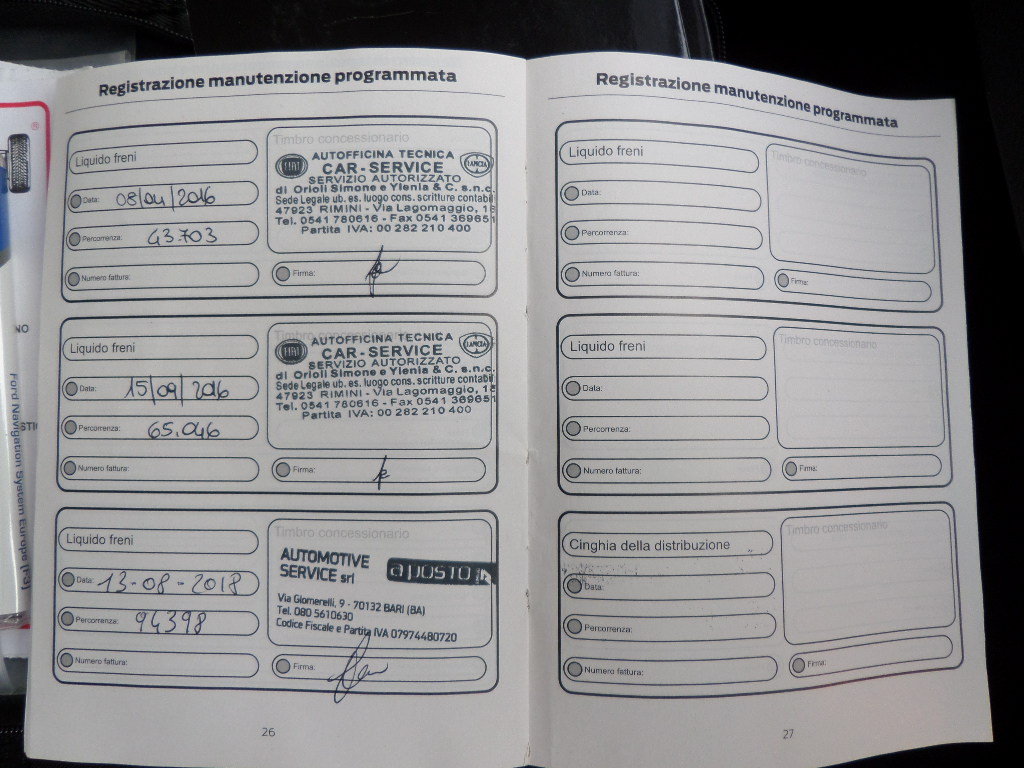 Registrazione manutenzione programmata
Liquido freni
Data: 08/04/2016
Percorrenza: 43.703
Numero fattura:
Timbro concessionario
AUTOFFICINA TECNICA
FIAT CAR-SERVICE LANCIA
SERVIZIO AUTORIZZATO
di Orioli Simone e Ylenia & C. s.n.c.
Sede Legale ub. es. luogo cons. scritture contabil
47923 RIMINI - Via Lagomaggio, 1
Tel. 0541 780616 - Fax 0541 369651
Partita IVA: 00 282 210 400
Firma:
Liquido freni
Data: 15/09/2016
Percorrenza: 65.046
Numero fattura:
Timbro concessionario
AUTOFFICINA TECNICA
FIAT CAR-SERVICE LANCIA
SERVIZIO AUTORIZZATO
di Orioli Simone e Ylenia & C. s.n.c.
Sede Legale ub. es. luogo cons. scritture contabil
47923 RIMINI - Via Lagomaggio, 1
Tel. 0541 780616 - Fax 0541 369651
Partita IVA: 00 282 210 400
Firma:
Liquido freni
Data: 13-08-2018
Percorrenza: 94398
Numero fattura:
Timbro concessionario
AUTOMOTIVE
SERVICE srl
a posto
Via Glomerelli, 9 - 70132 BARI (BA)
Tel. 080 5610630
Codice Fiscale e Partita IVA 07974480720
Firma:
26
Registrazione manutenzione programmata
Liquido freni
Data:
Percorrenza:
Numero fattura:
Timbro concessionario
Firma:
Liquido freni
Data:
Percorrenza:
Numero fattura:
Timbro concessionario
Firma:
Cinghia della distribuzione
Data:
Percorrenza:
Numero fattura:
Timbro concessionario
Firma:
27
NO
Ford Navigation System Europe (F3)